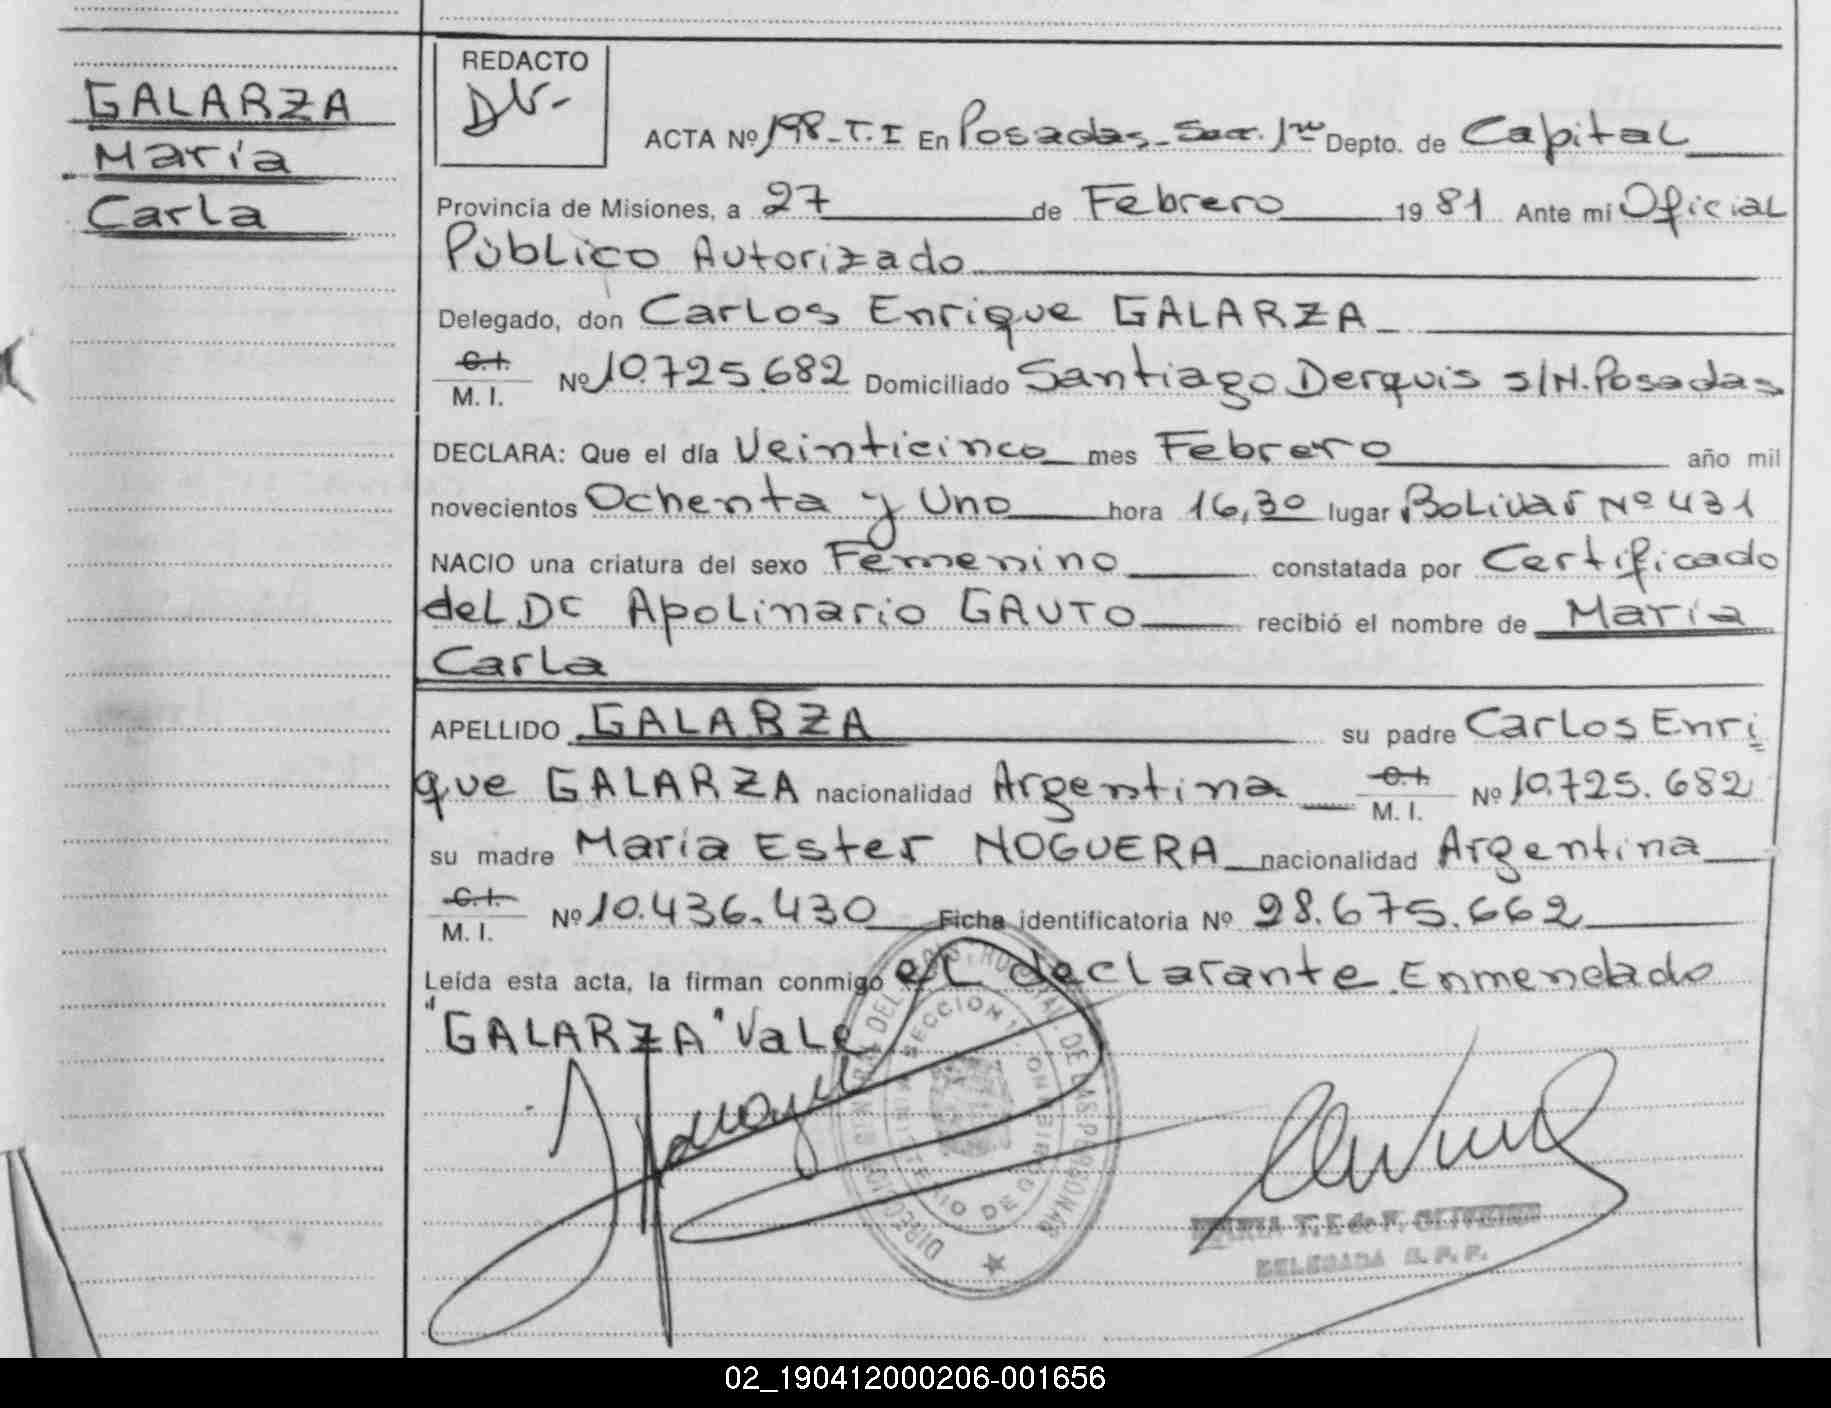 GALARZA
María
Carla
REDACTO
ACTA Nº 198 - T. I En Posadas - Secc. 1ra Depto. de Capital
Provincia de Misiones, a 27 de Febrero 19 81 Ante mi Oficial
Público Autorizado
Delegado, don Carlos Enrique GALARZA
C.I.
M. I. Nº 10.725.682 Domiciliado Santiago Derquis s/N. Posadas
DECLARA: Que el día Veinticinco mes Febrero año mil
novecientos Ochenta y Uno hora 16,30 lugar Bolivar Nº 431
NACIO una criatura del sexo Femenino constatada por Certificado
del Dr Apolinario GAUTO recibió el nombre de María
Carla
APELLIDO GALARZA su padre Carlos Enri
que GALARZA nacionalidad Argentina C.I.
M. I. Nº 10.725.682
su madre María Ester NOGUERA nacionalidad Argentina
C.I.
M. I. Nº 10.436.430 Ficha identificatoria Nº 28.675.662
Leída esta acta, la firman conmigo el declarante. Enmendado
"GALARZA" Vale
SECCION 1
DE LAS PERSONAS
DELEGADA
02_190412000206-001656